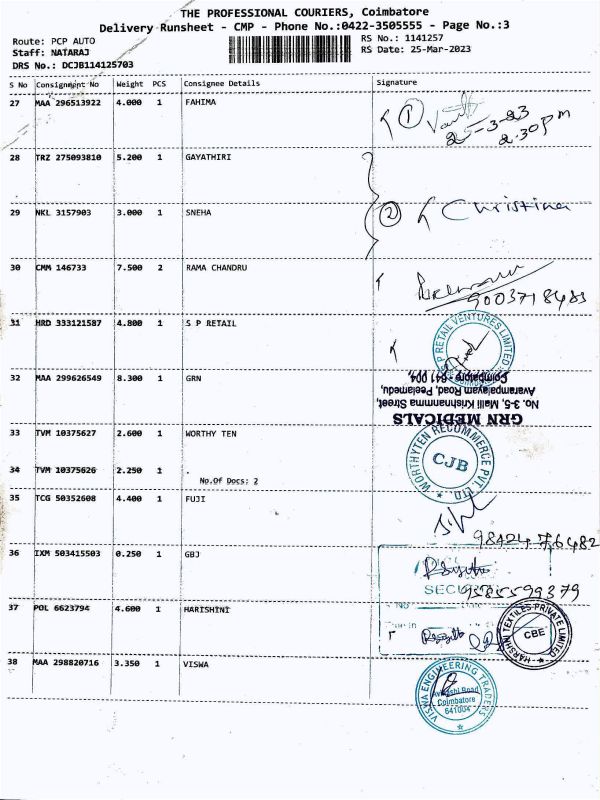 THE PROFESSIONAL COURIERS, Coimbatore
Delivery Runsheet - CMP - Phone No.:0422-3505555 - Page No.:3
Route: PCP AUTO
RS No.: 1141257
Staff: NATARAJ
RS Date: 25-Mar-2023
DRS No.: DCJB114125703
S No Consignment No Weight PCS Consignee Details Signature
27 MAA 296513922 4.000 1 FAHIMA
1
25-3-23
2.30pm
28 TRZ 275093810 5.200 1 GAYATHIRI
29 NKL 3157903 3.000 1 SNEHA
2 Christina
30 CMM 146733 7.500 2 RAMA CHANDRU
9003718483
31 HRD 333121587 4.800 1 S P RETAIL
S P RETAIL VENTURES LIMITED
32 MAA 299626549 8.300 1 GRN
GRN MEDICALS
No. 3-5, Malli Krishnamma Street,
Avarampalayam Road, Peelamedu,
Coimbatore - 641 004.
33 TVM 10375627 2.600 1 WORTHY TEN
WORTHYTEN RECOMMERCE PVT. LTD.
CJB
34 TVM 10375626 2.250 1 .
No.Of Docs: 2
35 TCG 50352608 4.400 1 FUJI
9842476482
36 IXM 503415503 0.250 1 GBJ
37 POL 6623794 4.600 1 HARISHINI
HARSHNI TEXTILES PRIVATE LIMITED
CBE
38 MAA 298820716 3.350 1 VISWA
VISWA ENGINEERING TRADERS
Avinashi Road
Coimbatore
641004